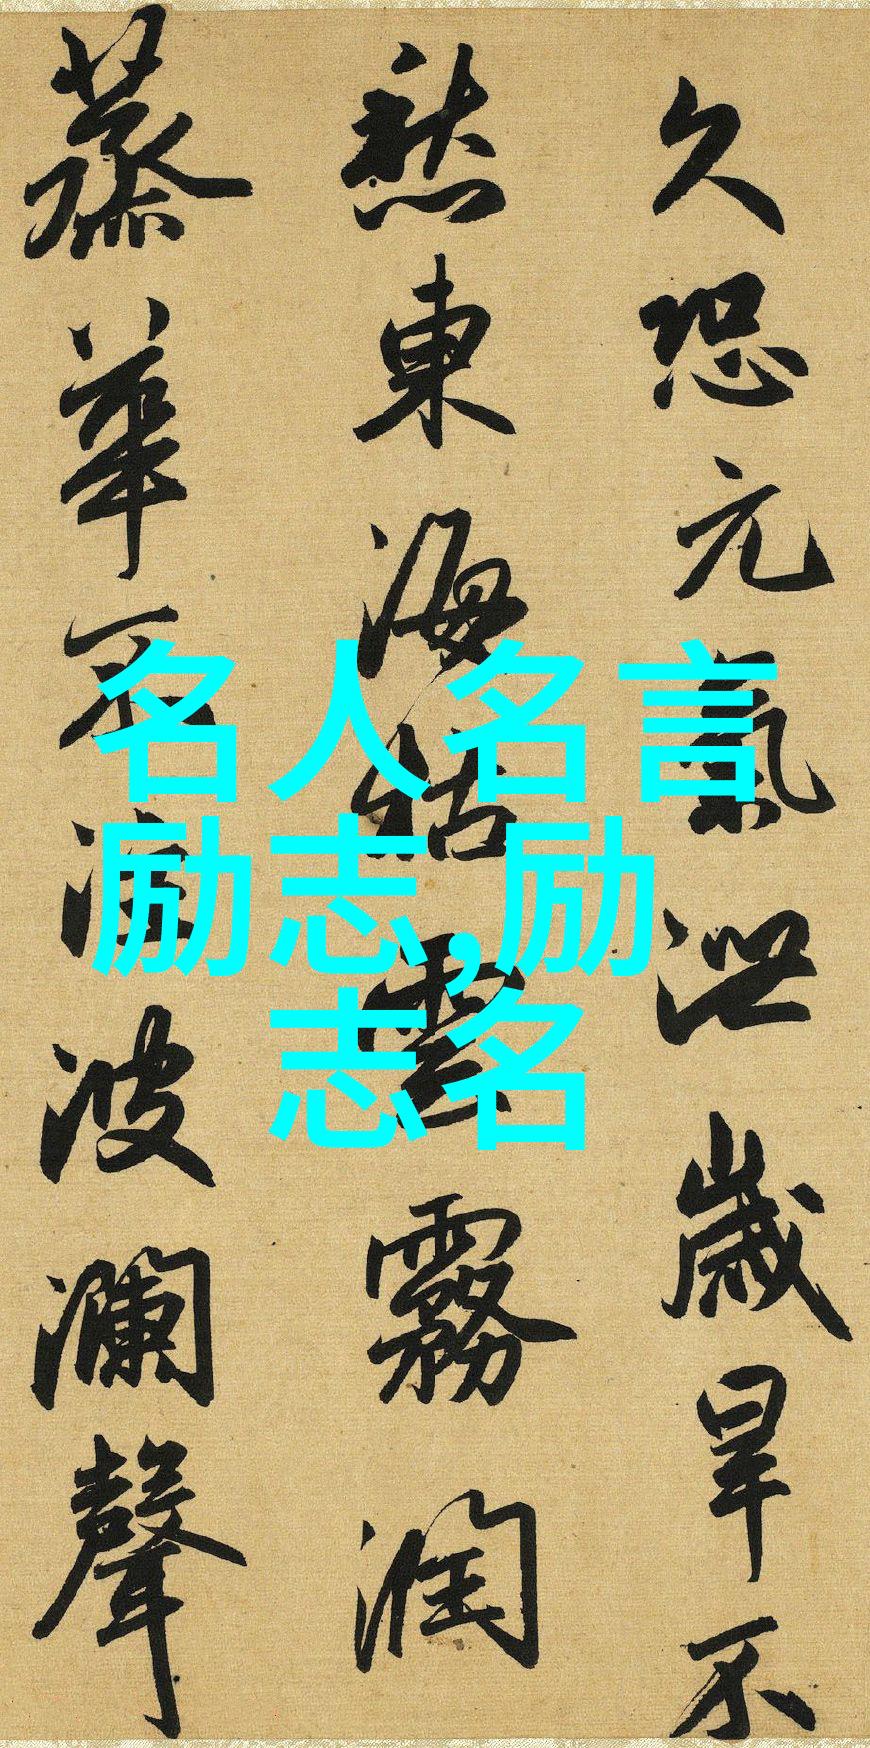 久恐元氣泄歲旱不
愁東海枯雲霧潤
蒸華不注波瀾聲
名人名言
励志,励
志名